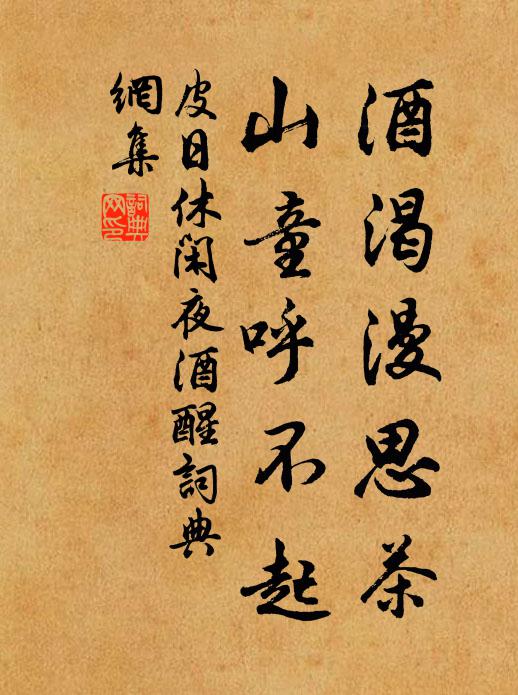 酒渴漫思茶
山童呼不起
皮日休閑夜酒醒詞典
網集
詞典
网印